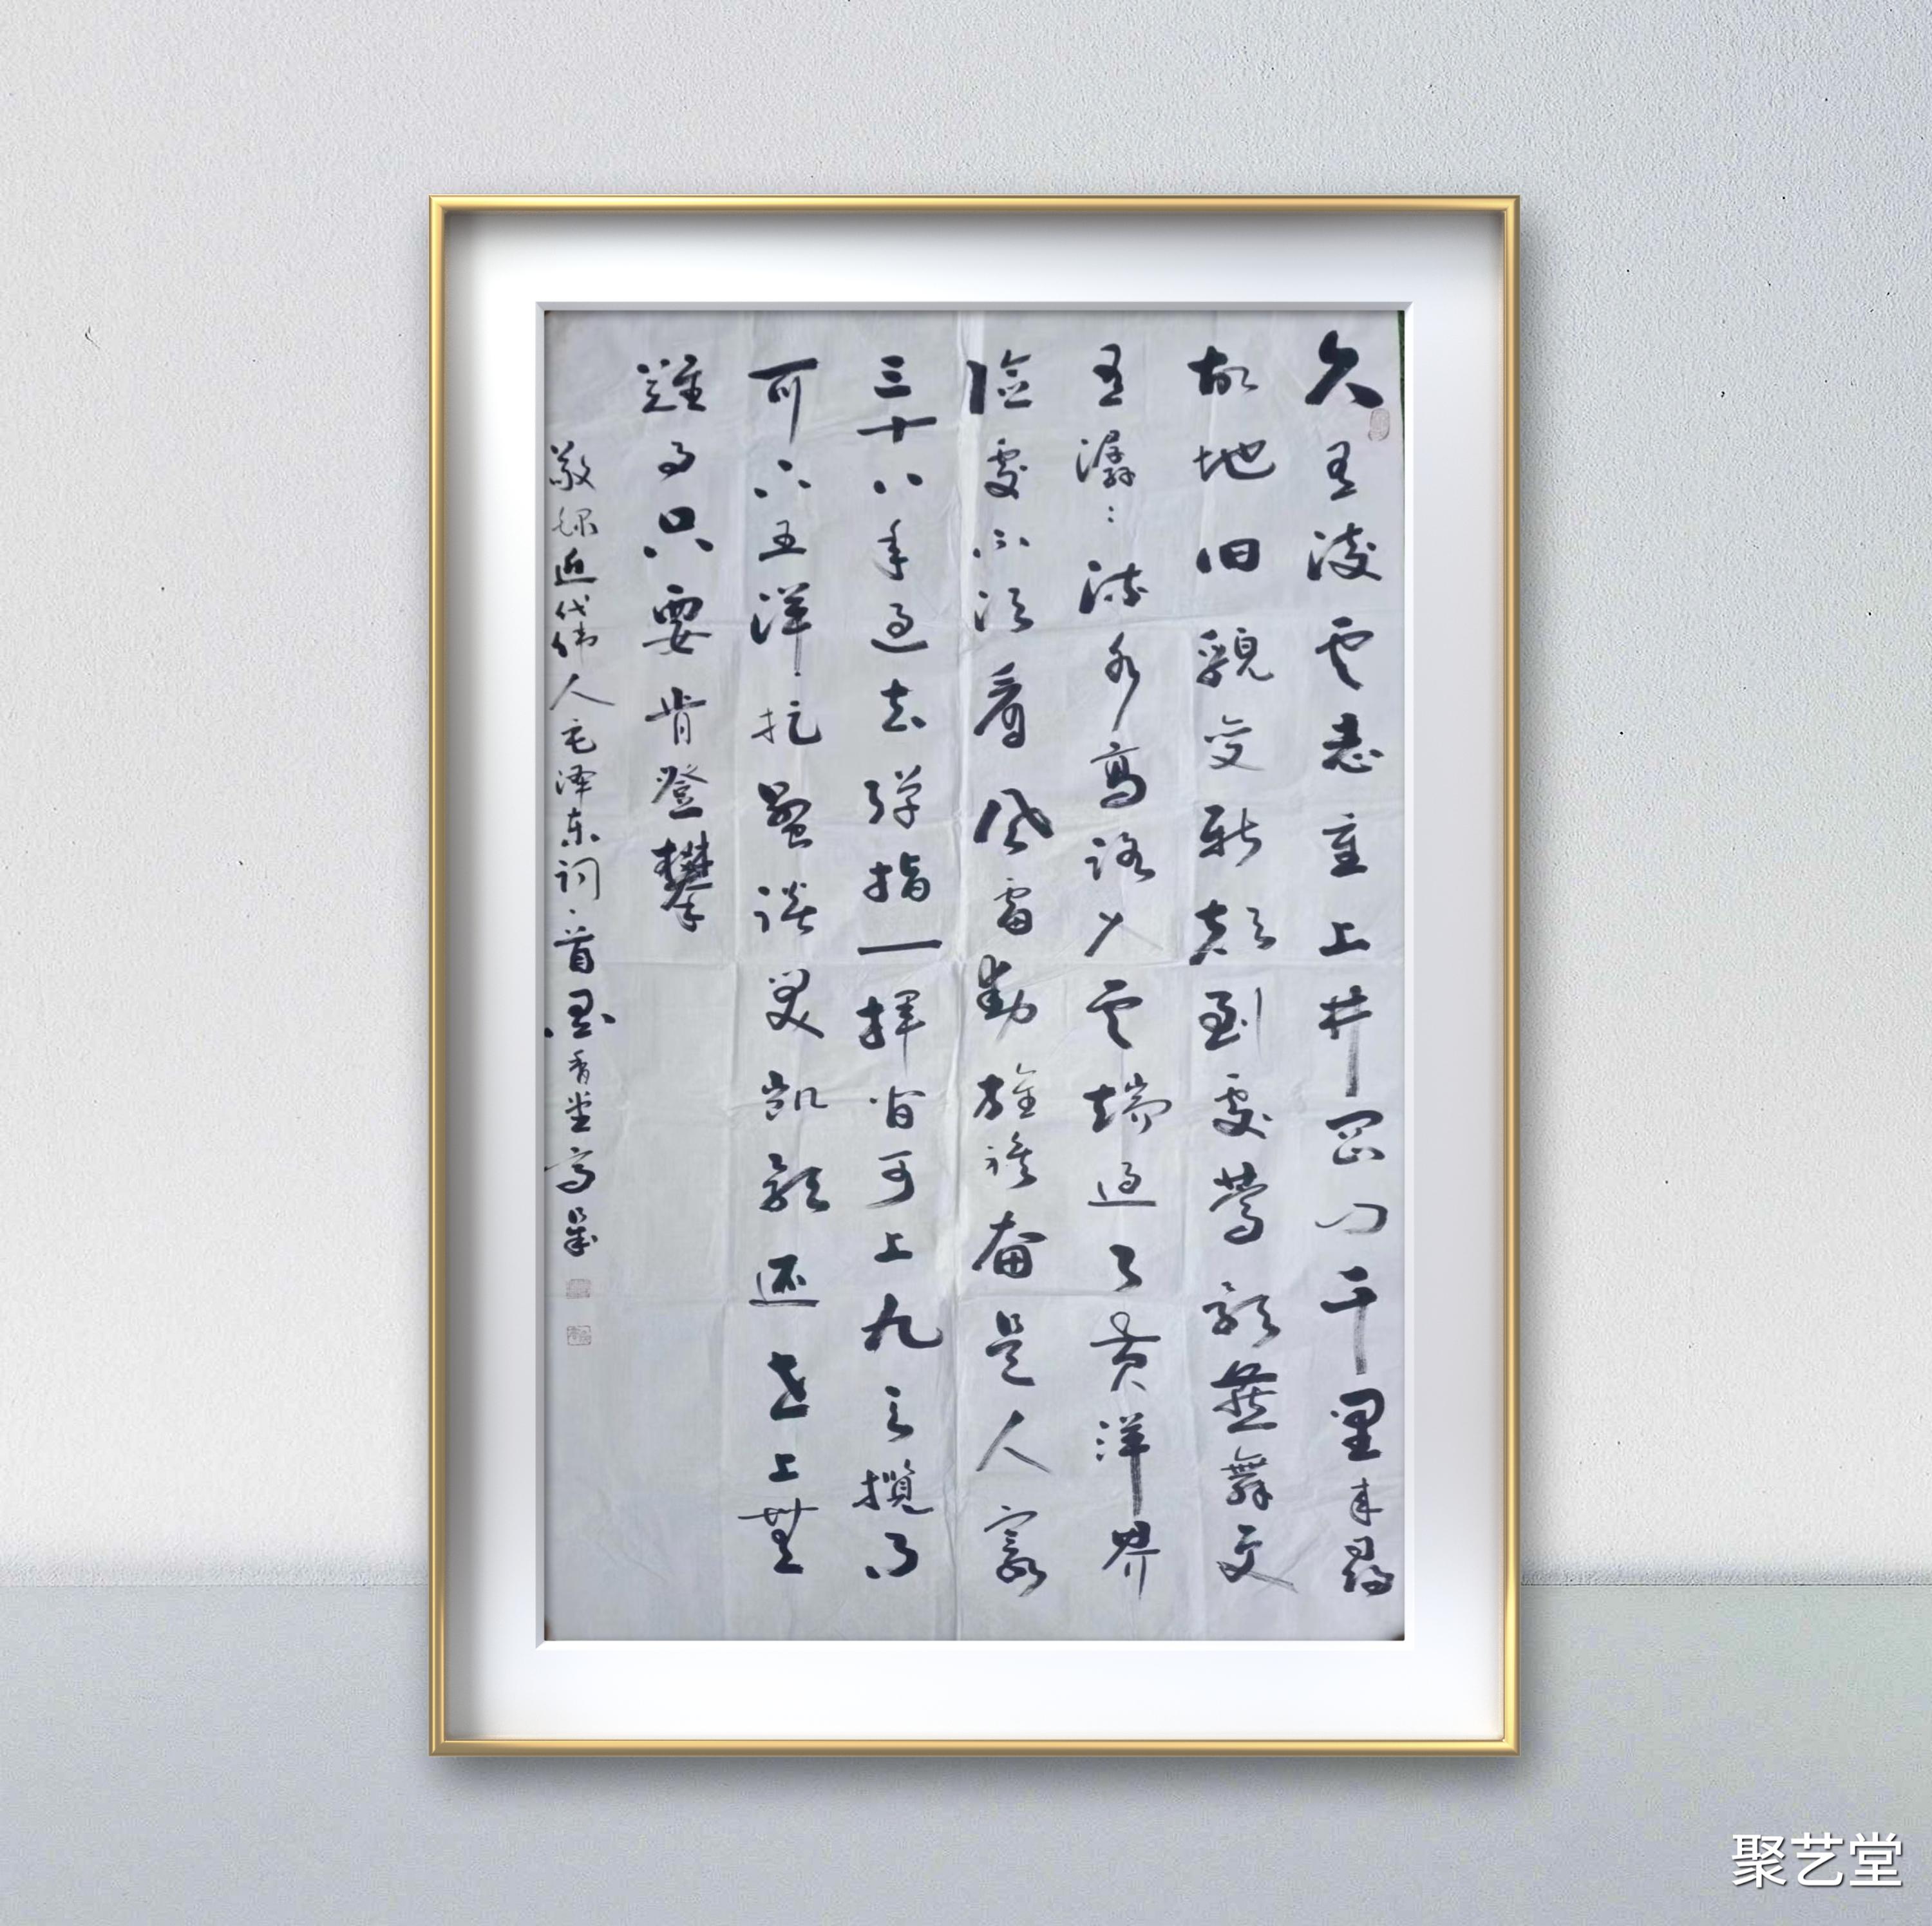 久有淩云志重上井冈山千里来尋
故地旧貌变新颜到處莺歌燕舞更
有潺潺流水高路入云端过了黄洋界
险處不须看风雷動旌旗奋是人寰
三十八年过去弹指一挥间可上九天揽月
可下五洋捉鳖谈笑凯歌还世上無
難事只要肯登攀
敬録近代伟人毛泽东词一首墨香堂高
聚艺堂